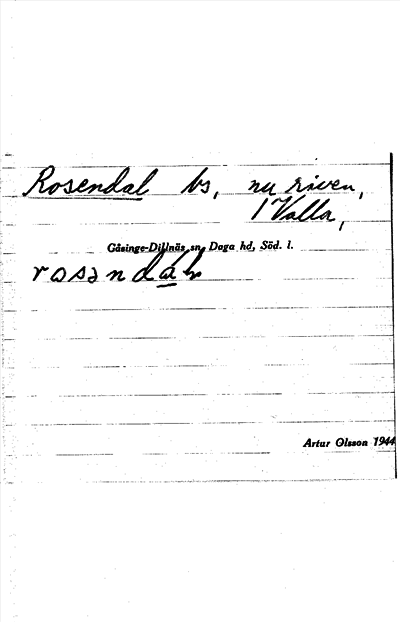 Rosendal bs, nu riven,
/ Valla,
Gåsinge-Dillnäs sn, Daga hd, Söd. l.
Artur Olsson 1944